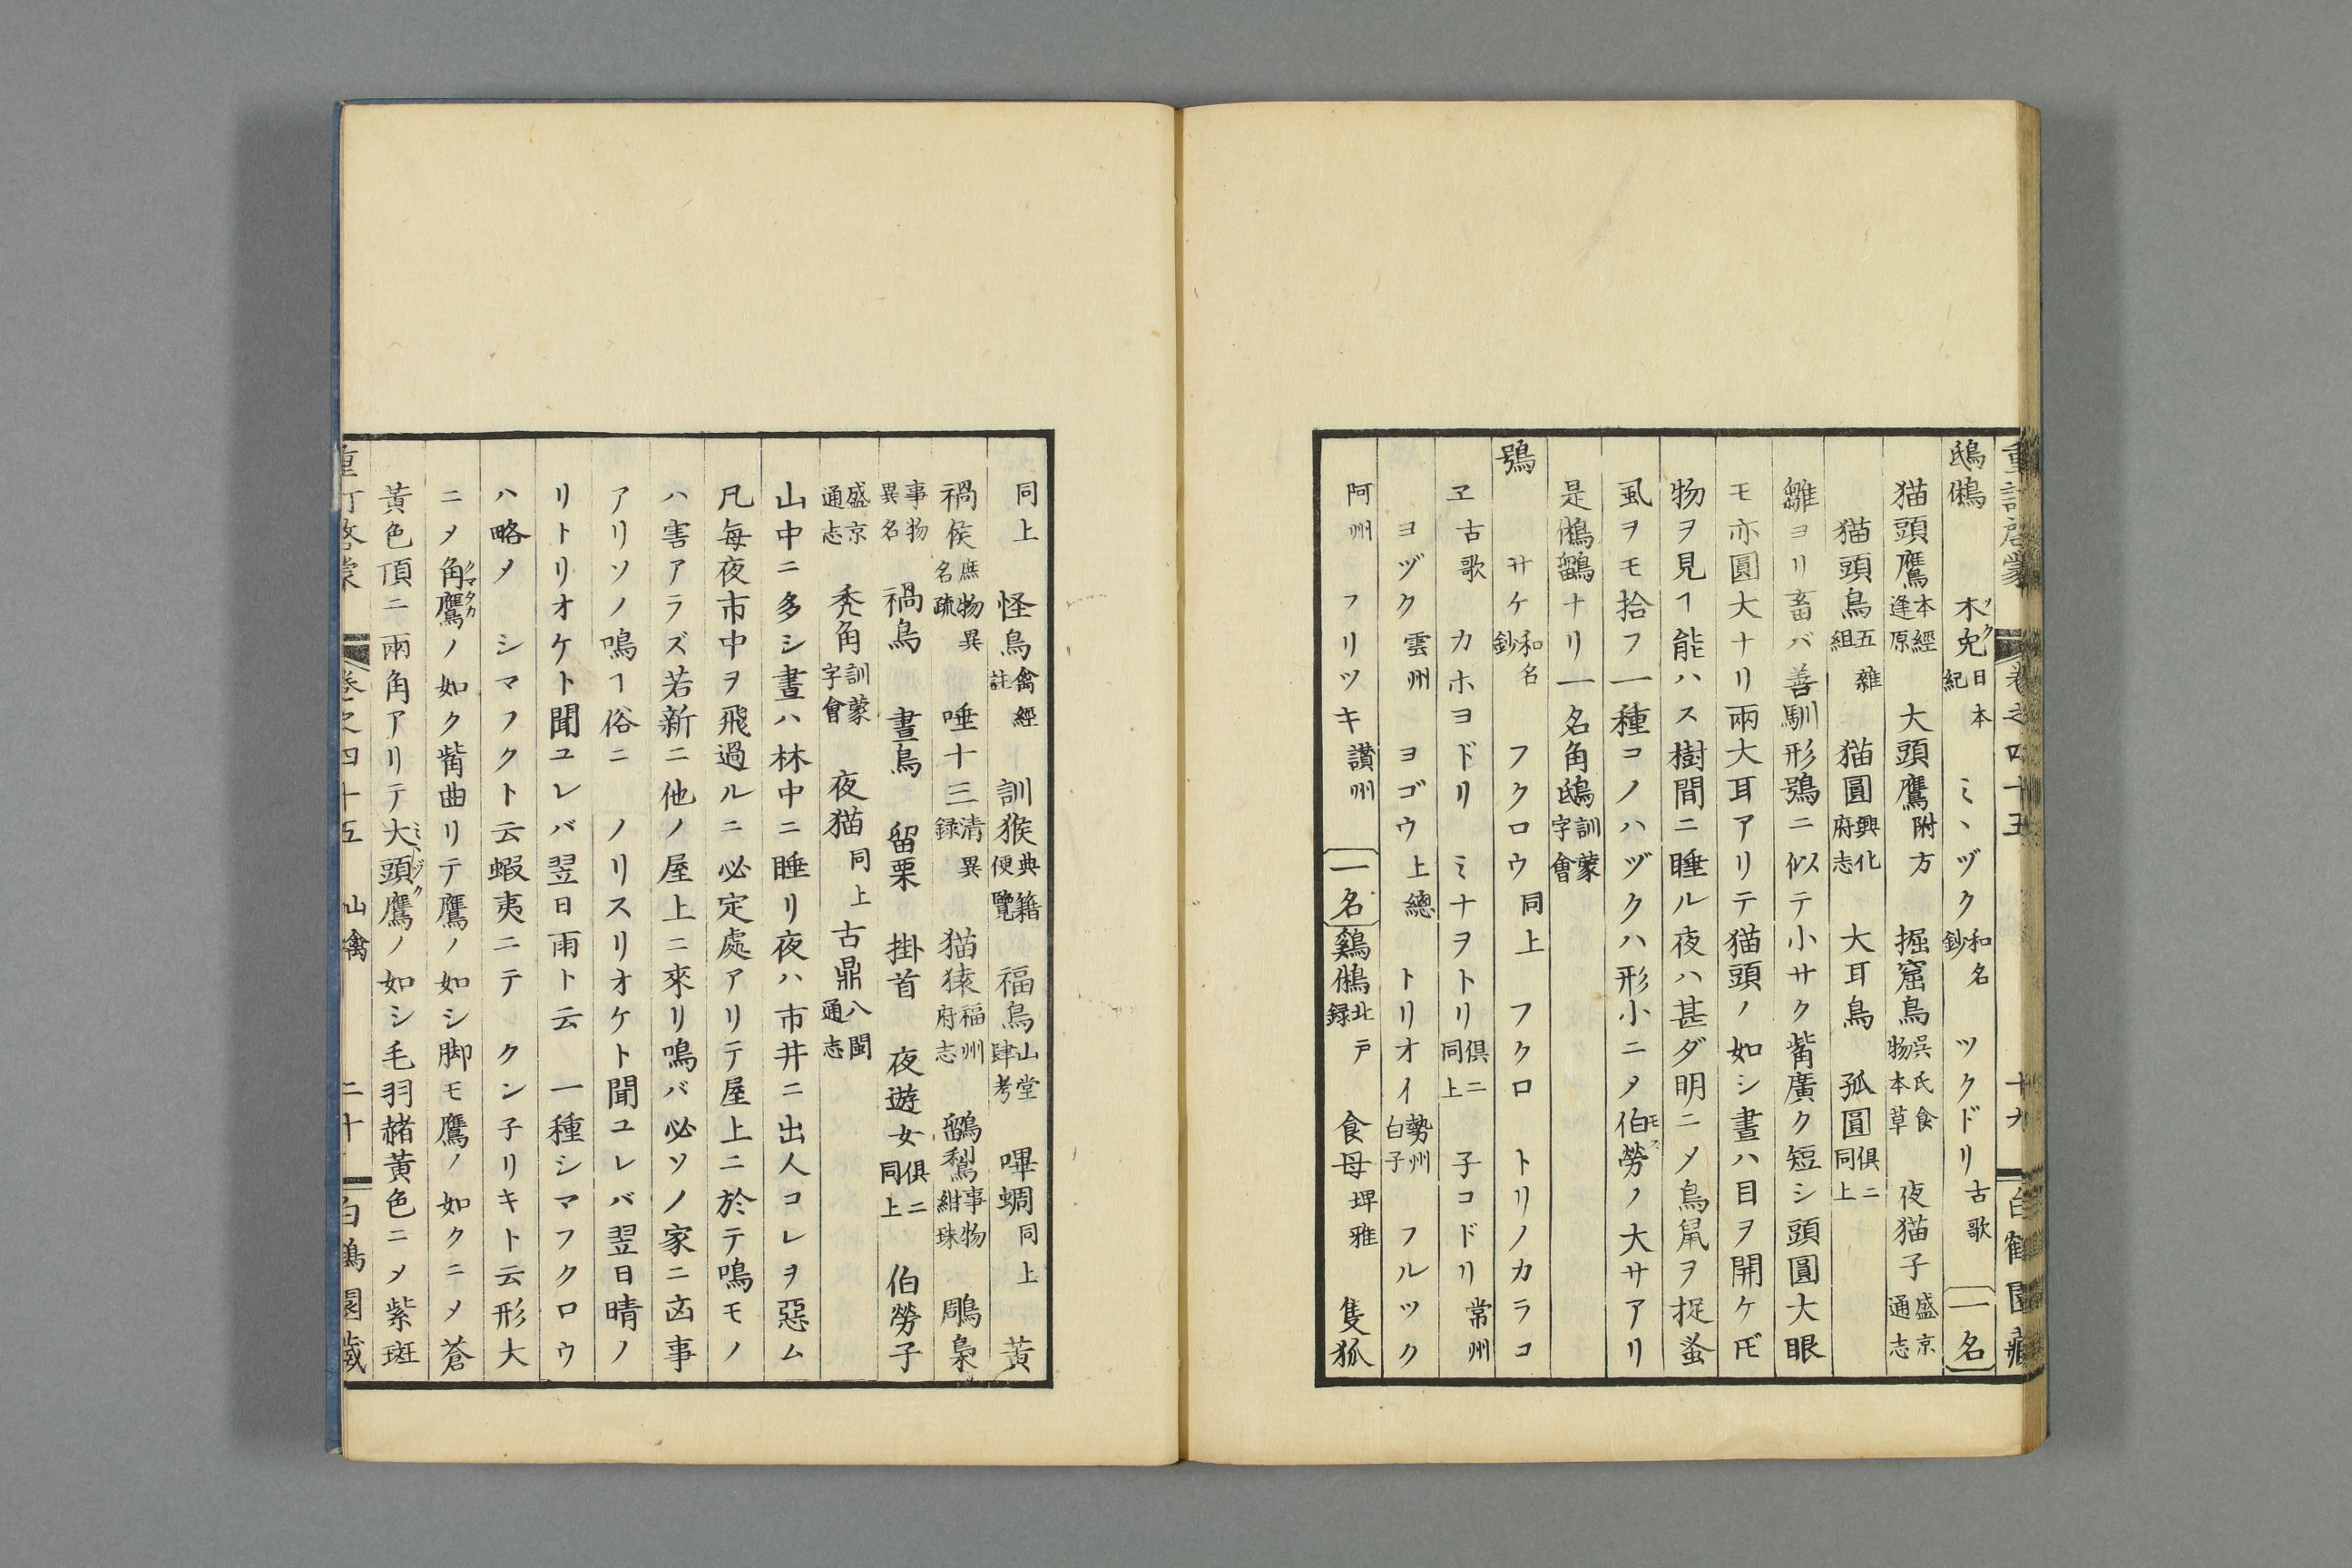 重訂啓蒙 巻之四十五 十九 白鶴園藏
鴟鵂 木兔ツク日本紀 ミヽヅク和名鈔 ツクドリ古歌 一名
猫頭鷹本經逢原 大頭鷹附方 掘窟鳥呉氏食物本草 夜猫子盛京通志
猫頭鳥五雜組 猫圓興化府志 大耳鳥 孤圓倶ニ同上
雛ヨリ畜バ善馴形鴞ニ似テ小サク觜廣ク短シ頭圓大眼
モ亦圓大ナリ兩大耳アリテ猫頭ノ如シ晝ハ目ヲ開ケ𪜈
物ヲ見ヿ能ハス樹間ニ睡ル夜ハ甚ダ明ニ〆鳥鼠ヲ捉蚤
虱ヲモ拾フ一種コノハヅクハ形小ニ〆伯勞モズノ大サアリ
是鵂鶹ナリ一名角鴟訓蒙字會
鴞 サケ和名鈔 フクロウ同上 フクロ トリノカラコ
ヱ古歌 カホヨドリ ミナヲトリ倶ニ同上 子コドリ常州
ヨヅク雲州 ヨゴウ上總 トリオイ勢州白子 フルツク
阿州 フリツキ讃州 一名 鷄鵂北戸録 食母埤雅 隻狐
同上 怪鳥禽經註 訓猴典籍便覽 福鳥山堂肆考 嗶蜩同上 黄
禍侯庶物異名疏 唾十三清異録 猫猿福州府志 鶹鵹事物紺珠 鵰梟
事物異名 禍鳥 晝鳥 留栗 掛首 夜遊女倶ニ同上 伯勞子
盛京通志 禿角訓蒙字會 夜猫同上 古鼎八閩通志
山中ニ多シ晝ハ林中ニ睡リ夜ハ市井ニ出人コレヲ惡ム
凡毎夜市中ヲ飛過ルニ必定處アリテ屋上ニ於テ鳴モノ
ハ害アラズ若新ニ他ノ屋上ニ來リ鳴バ必ソノ家ニ凶事
アリソノ鳴ヿ俗ニ ノリスリオケト聞ユレバ翌日晴ノ
リトリオケト聞ユレバ翌日雨ト云 一種シマフクロウ
ハ略〆 シマフクト云蝦夷ニテ クン子リキト云形大
ニ〆角鷹クマタカノ如ク觜曲リテ鷹ノ如シ脚モ鷹ノ如クニ〆蒼
黄色頂ニ兩角アリテ大頭鷹ミヽヅクノ如シ毛羽赭黄色ニ〆紫斑
重訂啓蒙 巻之四十五 山禽 二十 白鶴園藏